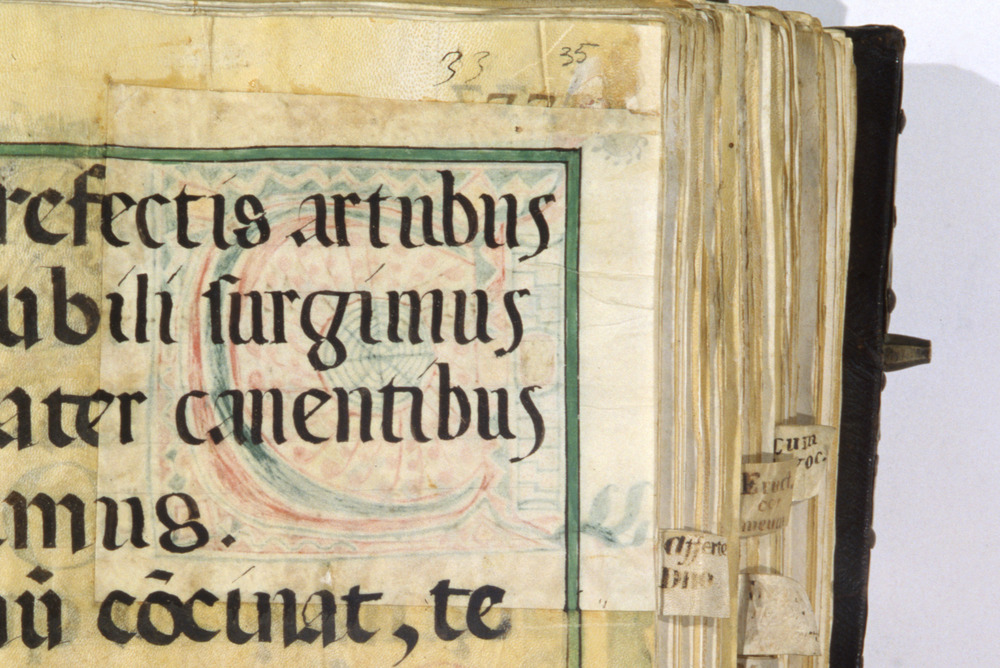 33 35
refectis artubus
ubili surgimus
ater canentibus
amus.
ii cōcinat, te
Cum
voc.
Exod.
Afferte
Dño.